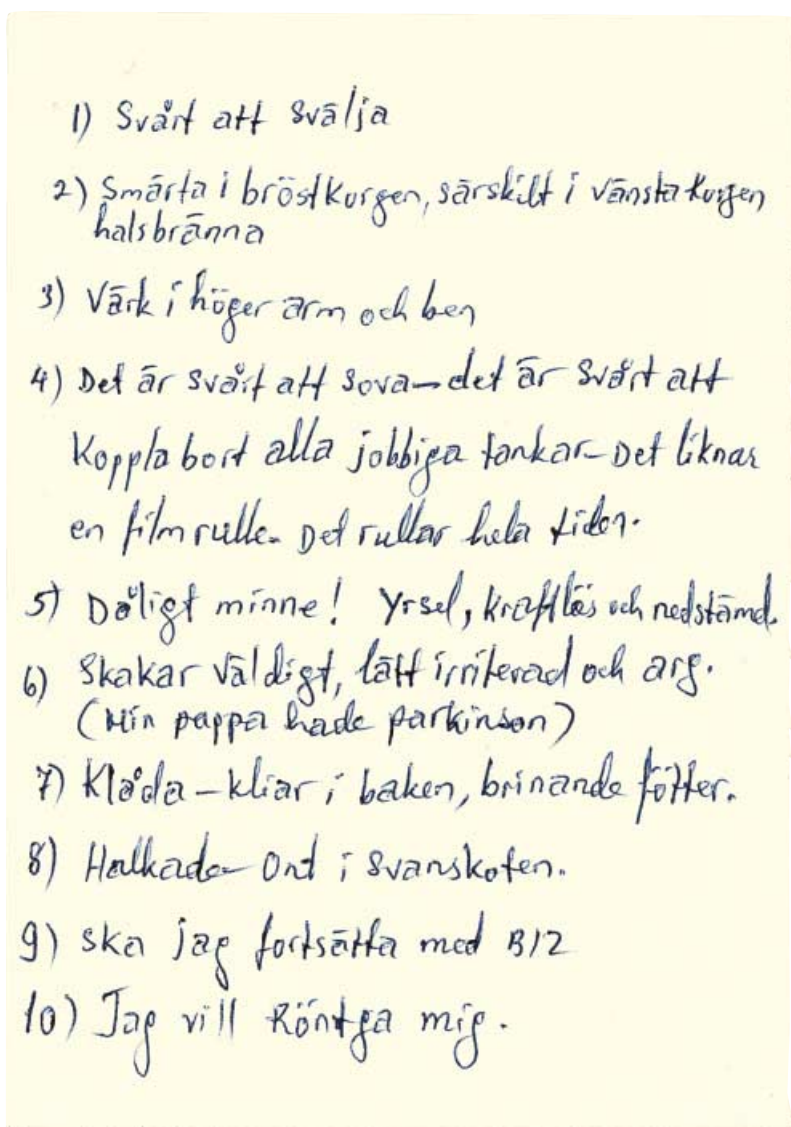 1) Svårt att svälja
2) Smärta i bröstkorgen, särskilt i vänsta korgen
halsbränna
3) Värk i höger arm och ben
4) Det är svårt att sova—det är svårt att
Koppla bort alla jobbiga tankar—Det liknar
en filmrulle. Det rullar hela tiden.
5) Dåligt minne! Yrsel, kraftlös och nedstämd.
6) Skakar väldigt, lätt irriterad och arg.
(Min pappa hade parkinson)
7) Klåda—kliar i baken, brinande fötter.
8) Halkade—Ont i svanskoten.
9) ska jag fortsätta med B12
10) Jag vill Röntga mig.